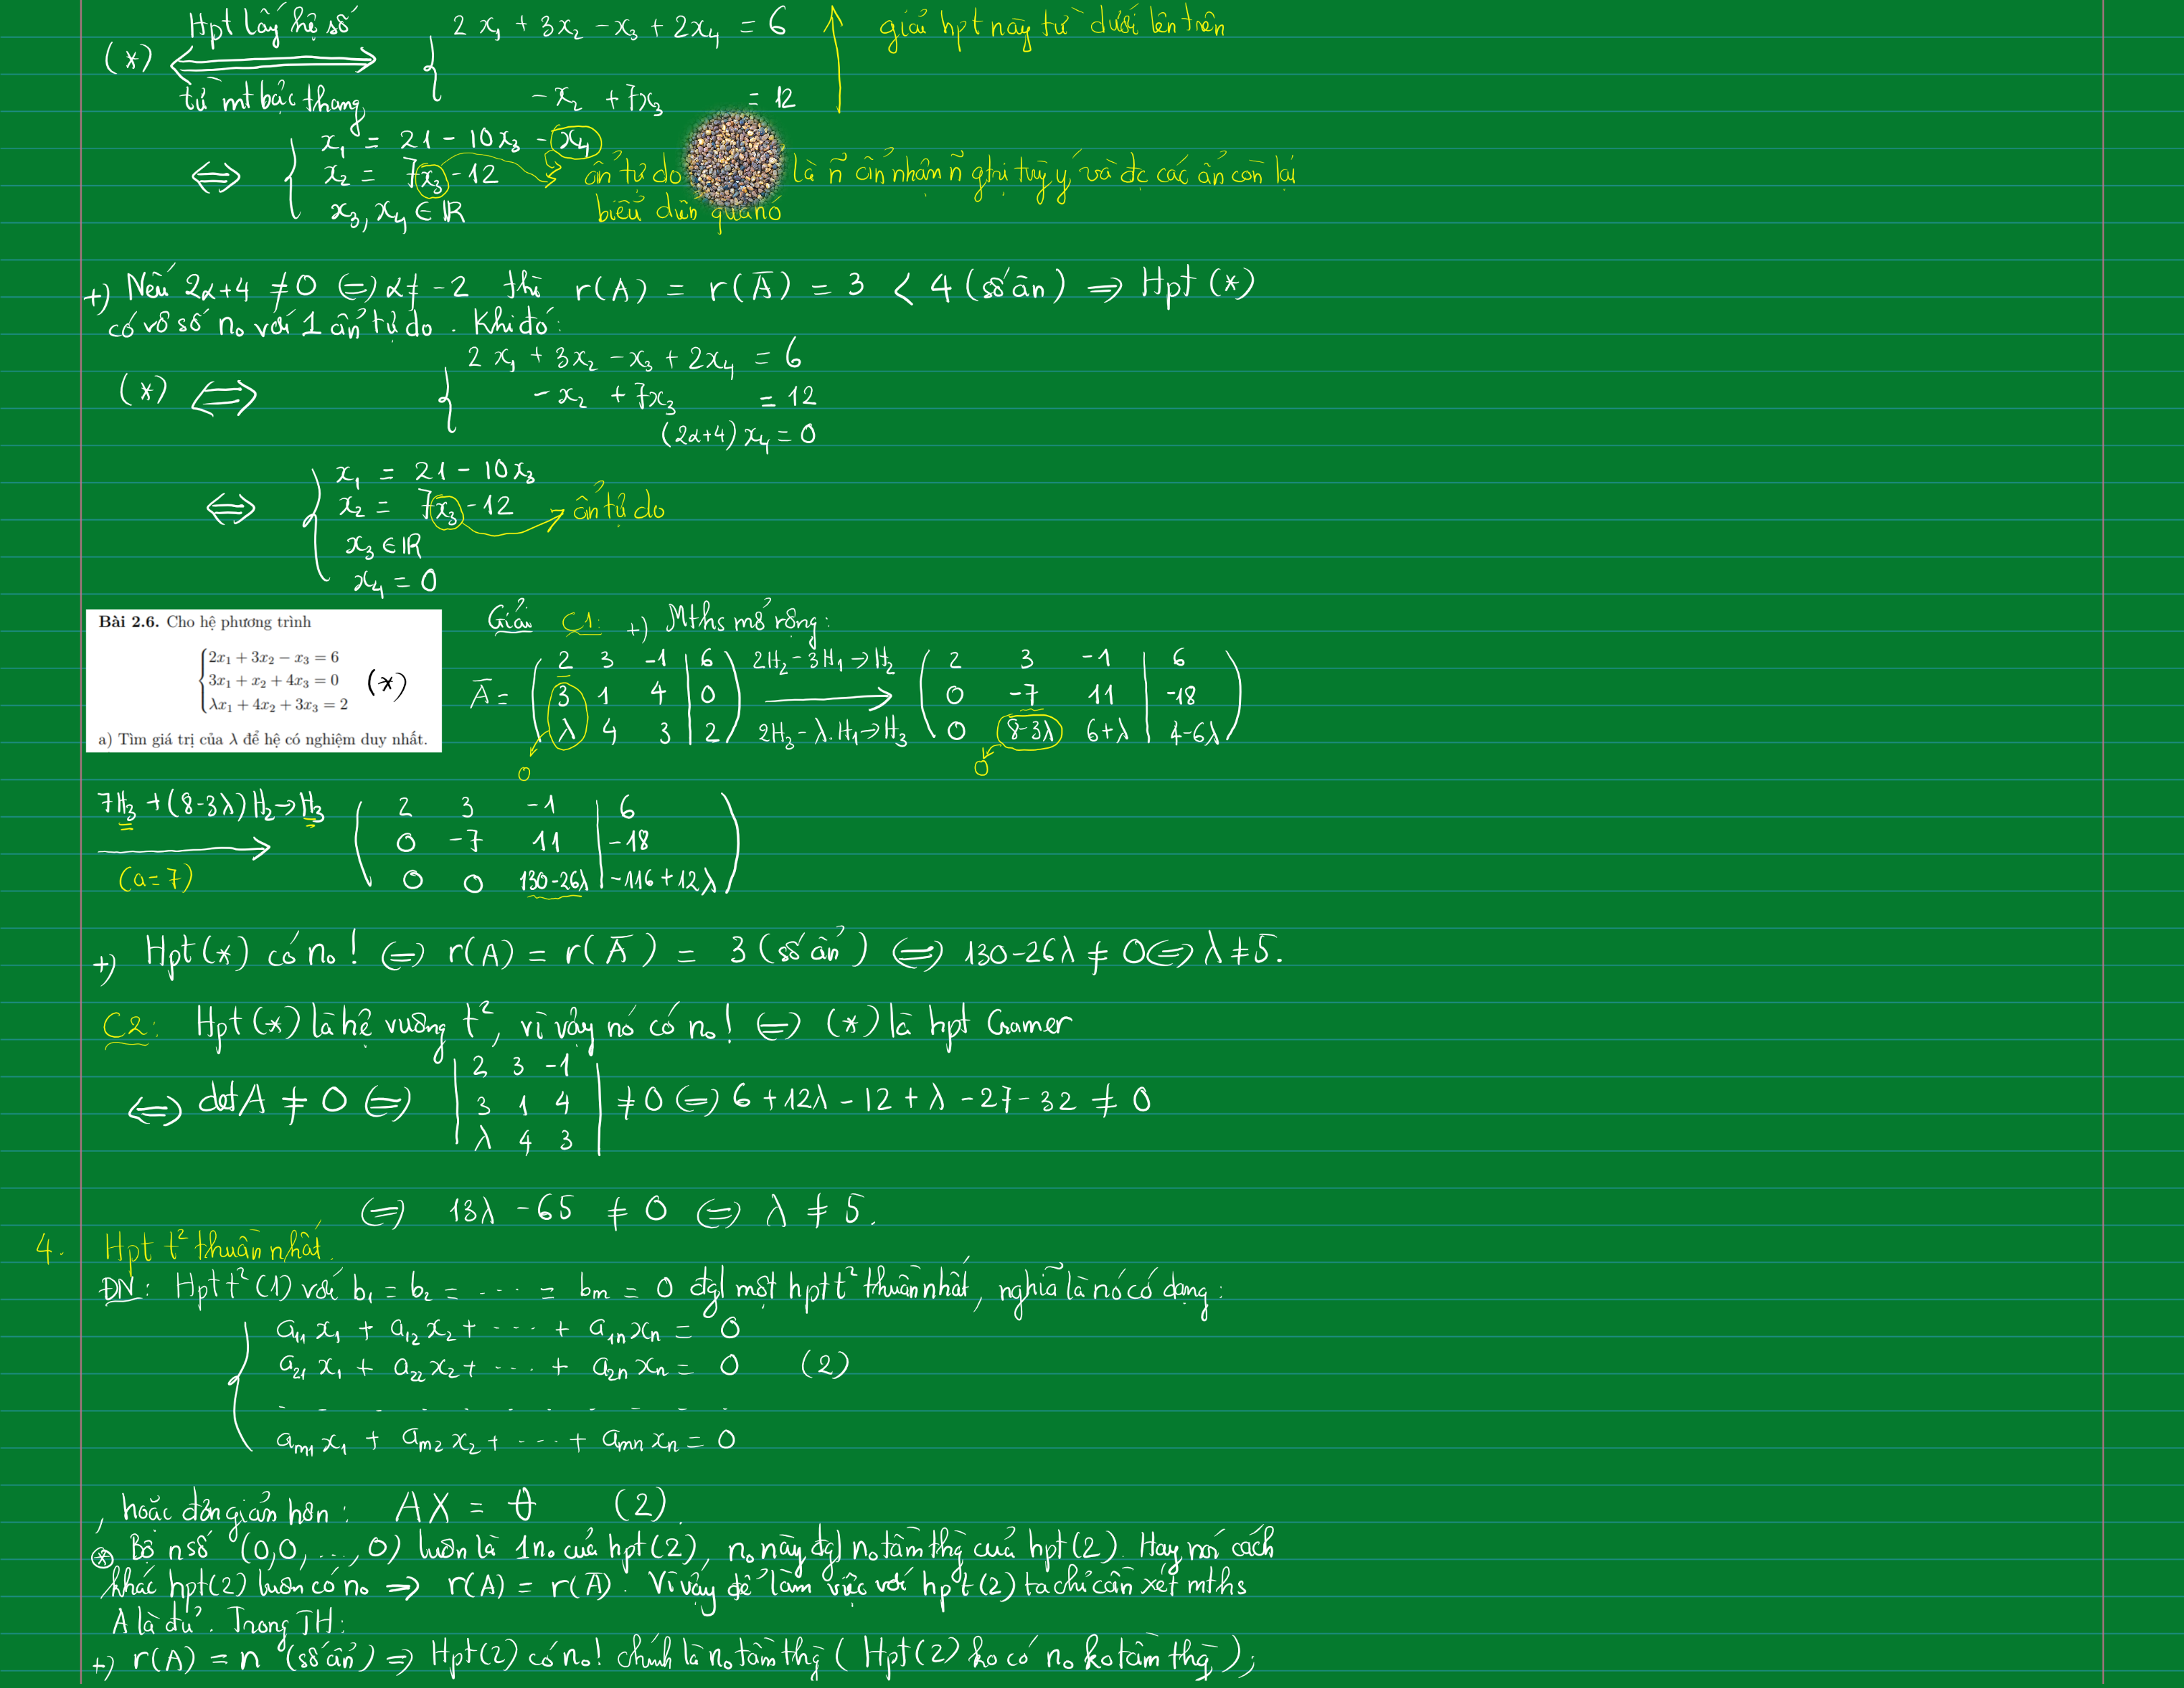 Hpt lấy hệ số
(*) ⟺ { 2x₁ + 3x₂ - x₃ + 2x₄ = 6 ↑ giải hpt này từ dưới lên trên
từ mt bậc thang
-x₂ + 7x₃ = 12
⟺ { x₁ = 21 - 10x₃ - x₄
x₂ = 7x₃ - 12 → ẩn tự do là ~ ẩn nhận ~ gtrị tùy ý và đc các ẩn còn lại
x₃, x₄ ∈ ℝ biểu diễn qua nó
+) Nếu 2α+4 ≠ 0 ⟺ α ≠ -2 thì r(A) = r(A̅) = 3 < 4 (số ẩn) ⟹ Hpt (*)
có vô số n₀ với 1 ẩn tự do. Khi đó:
(*) ⟺ { 2x₁ + 3x₂ - x₃ + 2x₄ = 6
-x₂ + 7x₃ = 12
(2α+4)x₄ = 0
⟺ { x₁ = 21 - 10x₃
x₂ = 7x₃ - 12 → ẩn tự do
x₃ ∈ ℝ
x₄ = 0
Bài 2.6. Cho hệ phương trình
{ 2x₁ + 3x₂ − x₃ = 6
3x₁ + x₂ + 4x₃ = 0 (*)
λx₁ + 4x₂ + 3x₃ = 2
a) Tìm giá trị của λ để hệ có nghiệm duy nhất.
Giải C1: +) Mths mở rộng:
A̅ = ( 2 3 -1 | 6 ) 2H₂ - 3H₁ → H₂ ( 2 3 -1 | 6 )
( 3 1 4 | 0 ) ⟶ ( 0 -7 11 | -18 )
( λ 4 3 | 2 ) 2H₃ - λ.H₁ → H₃ ( 0 8-3λ 6+λ | 4-6λ )
0 0
7H₃ + (8-3λ)H₂ → H₃ ( 2 3 -1 | 6 )
⟶ ( 0 -7 11 | -18 )
(a=7) ( 0 0 130-26λ | -116+12λ )
+) Hpt(*) có n₀! ⟺ r(A) = r(A̅) = 3 (số ẩn) ⟺ 130-26λ ≠ 0 ⟺ λ ≠ 5.
C2: Hpt (*) là hệ vuông t², vì vậy nó có n₀! ⟺ (*) là hpt Cramer
| 2 3 -1 |
⟺ det A ≠ 0 ⟺ | 3 1 4 | ≠ 0 ⟺ 6 + 12λ - 12 + λ - 27 - 32 ≠ 0
| λ 4 3 |
⟺ 13λ - 65 ≠ 0 ⟺ λ ≠ 5.
4. Hpt t² thuần nhất.
ĐN: Hptt² (1) với b₁ = b₂ = ---- = bₘ = 0 đgl một hptt² thuần nhất, nghĩa là nó có dạng:
{ a₁₁x₁ + a₁₂x₂ + ---- + a₁ₙxₙ = 0
a₂₁x₁ + a₂₂x₂ + --.. + a₂ₙxₙ = 0 (2)
- - - - - - - - - -
aₘ₁x₁ + aₘ₂x₂ + ---- + aₘₙxₙ = 0
, hoặc đơn giản hơn: AX = θ (2).
⊛ Bộ n số (0,0,...,0) luôn là 1 n₀ của hpt(2), n₀ này đgl n₀ tầm thg của hpt(2). Hay nói cách
khác hpt(2) luôn có n₀ ⟹ r(A) = r(A̅). Vì vậy để làm việc với hpt(2) ta chỉ cần xét mths
A là đủ. Trong TH:
+) r(A) = n (số ẩn) ⟹ Hpt(2) có n₀! chính là n₀ tầm thg (Hpt(2) ko có n₀ ko tầm thg);